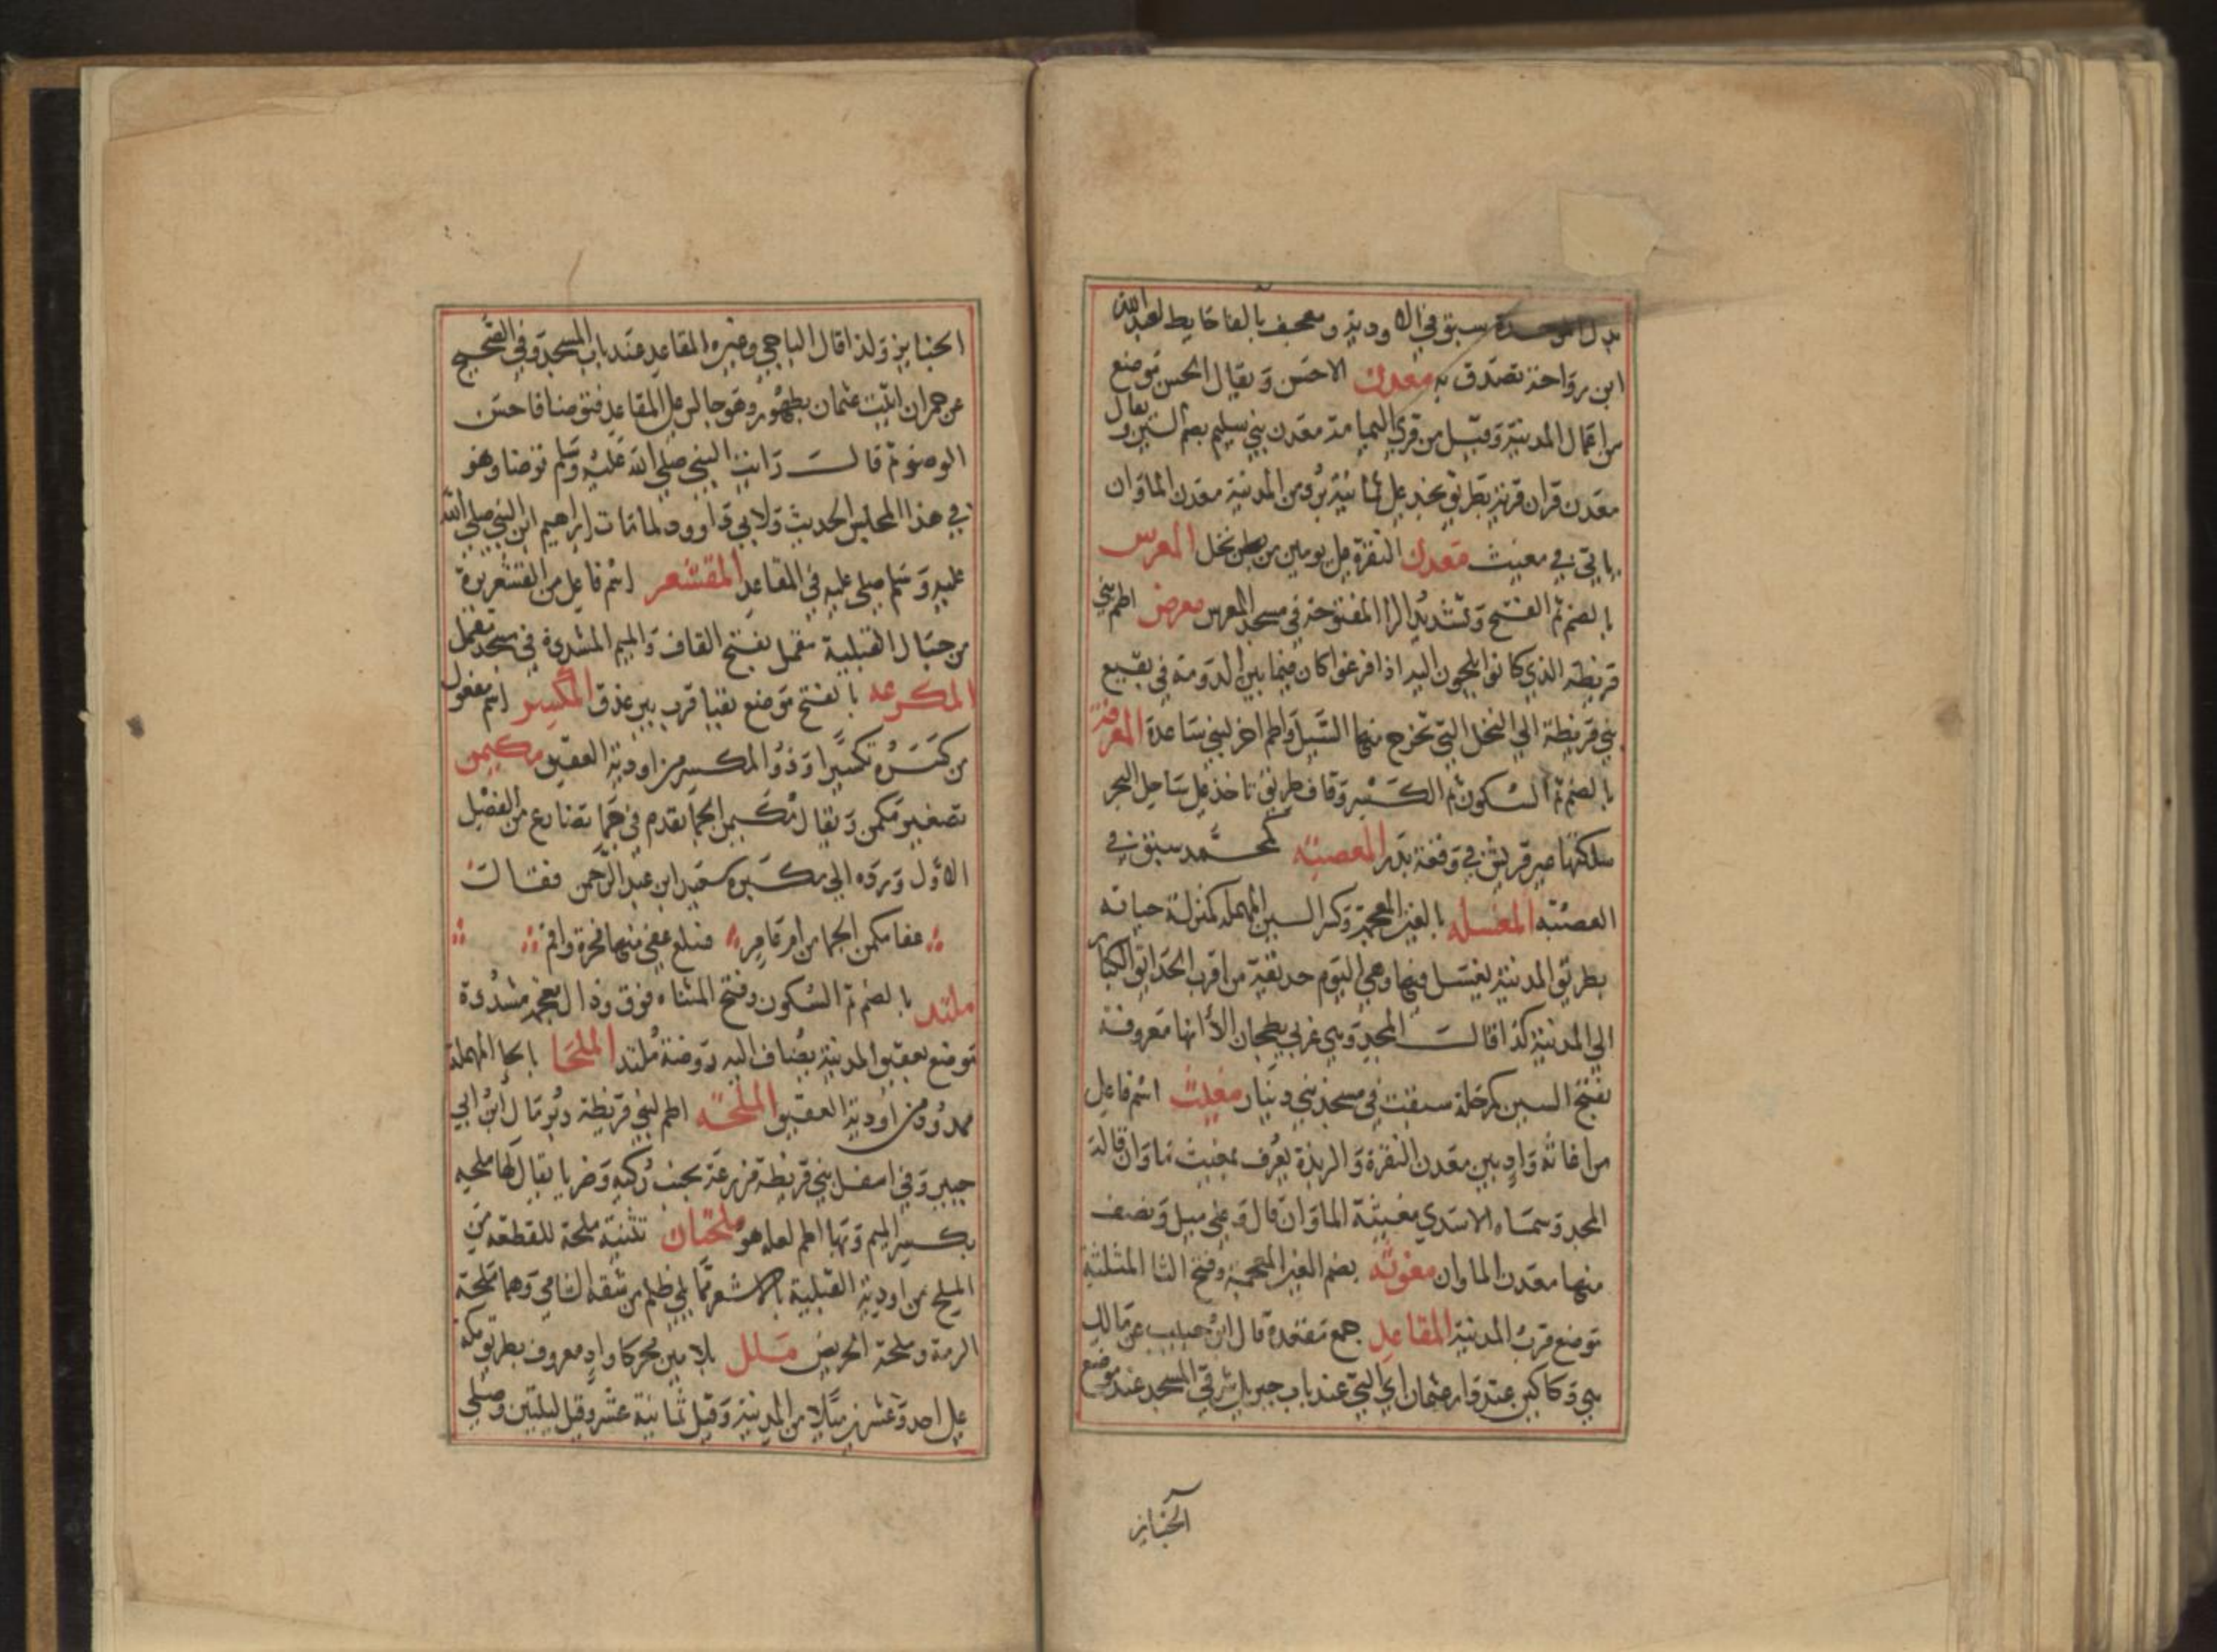 بدل الموحدة سبق في الاودية ومعجف بالفا حايط لعبد الله
ابن رواحة تصدق به معدن الاحسن ويقال الحسن موضع
من اعمال المدينة وقيل من قري اليمامة معدن بني سليم بضم السين ويقال
معدن قران قرية بطريق نجد علي ثمانية برد من المدينة معدن الماوان
ياتي في مغيث معدن النقرة علي يومين من بطن نخل المعرس
بالضم ثم الفتح وتشديد الرا المفتوحة في مسجد المعرس معرض اطم بني
قريظة الذي كانوا يلجون اليه اذا فزعوا كان فيما بين الدومة في بقيع
بني قريظة الي النخل التي تخرج منها السيل واطم اخر لبني ساعدة المعرفة
بالضم ثم السكون ثم الكسر وقاف طريق تاخذ علي ساحل البحر
سلكتها عير قريش في وقعة بدر المعصبه كمحمد سبق في
العصبه المغسله بالغين المعجمة وكسر السين المهملة كمنزلة جبانه
بطريق المدينة يغتسل فيها وهي اليوم حديقة من اقرب الحدايق الكبار
الي المدينة كذا قال المجد وهي غربي بطحان الا انها معروفة
بفتح السين كمرحلة سبقت في مسجد بني دينار مغيث اسم فاعل
من اغاثه واد بين معدن النقرة والربذة يعرف بمغيث ماوان قاله
المجد وسماه الاسدي مغيثة الماوان قال وعلي ميل ونصف
منها معدن الماوان مغوثه بضم الغين المعجمة وفتح الثا المثلثة
موضع قرب المدينة المقاعد جمع مقعدة قال ابن حبيب عن مالك
هي دكاكين عند دار عثمان اي التي عند باب جبريل شرقي المسجد عند موضع
الجنايز
الجنايز ولذا قال الباجي وغيره المقاعد عند باب المسجد وفي الصحيح
عن حمران اتيت عثمان بطهور وهو جالس علي المقاعد فتوضا فاحسن
الوضو ثم قال رايت النبي صلي الله عليه وسلم توضا وهو
في هذا المجلس الحديث ولابي داوود لما مات ابراهيم ابن النبي صلي الله
عليه وسلم صلي عليه في المقاعد المقشعر اسم فاعل من القشعريرة
من جبال القبلية مقمل بفتح القاف والميم المشددة في مسجد مقمل
المكرعه بالفتح موضع بقبا قرب بير عذق المكسر اسم مفعول
من كسره تكسيرا وذو المكسر من اودية العقيق مكيمن
تصغير مكمن ويقال مكيمن الجما تقدم في جما تضارع من الفصل
الاول ورده الي مكبره سعيد ابن عبد الرحمن فقال
عفا مكمن الجما من ام عامر فسلع عفي منها فحرة واقم
ملتذ بالضم ثم السكون وفتح المثناه فوق وذال معجمه مشددة
موضع بعقيق المدينة يضاف اليه روضة ملتذ الملحا بالحا المهملة
ممدود من اودية العقيق الملحه اطم لبني قريظة دبر مال ابن ابي
جبير وفي اسفل بني قريظة مزرعة بجنب ركيه وخربا يقال لها ملحيه
بكسر الميم وبها اطم لعله هو ملحتان تثنية ملحة للقطعة من
الملح من اودية القبلية بالاشعر مما يلي ظلم من شقه الشامي وهما ملحة
الرمة وملحة الحريض ملل بلامين محركا واد معروف بطريق مكة
علي احد وعشرين ميلا من المدينة وقيل ثمانية عشر وقيل ليلتين وصلي